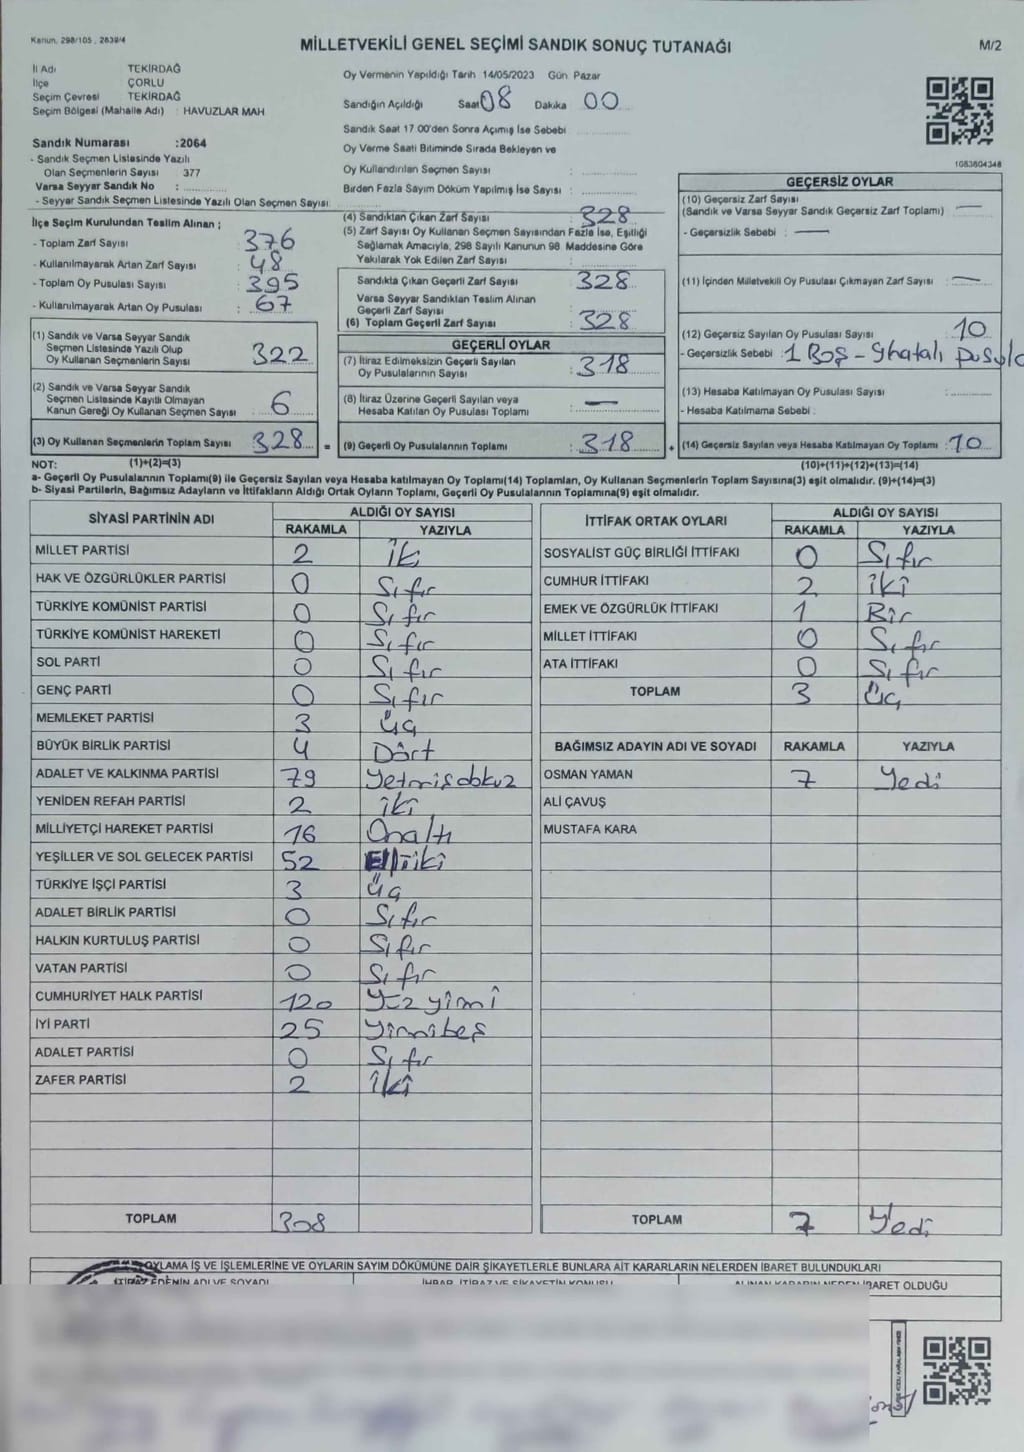 Kanun. 298/105 , 2839/4
MİLLETVEKİLİ GENEL SEÇİMİ SANDIK SONUÇ TUTANAĞI
M/2
İl Adı TEKİRDAĞ
İlçe ÇORLU
Seçim Çevresi TEKİRDAĞ
Seçim Bölgesi (Mahalle Adı) : HAVUZLAR MAH
Sandık Numarası :2064
- Sandık Seçmen Listesinde Yazılı
Olan Seçmenlerin Sayısı 377
Varsa Seyyar Sandık No :
- Seyyar Sandık Seçmen Listesinde Yazılı Olan Seçmen Sayısı
Oy Vermenin Yapıldığı Tarih 14/05/2023 Gün Pazar
Sandığın Açıldığı Saat 08 Dakika 00
Sandık Saat 17.00'den Sonra Açımış İse Sebebi
Oy Verme Saati Bitiminde Sırada Bekleyen ve
Oy Kullandırılan Seçmen Sayısı :
Birden Fazla Sayım Döküm Yapılmış İse Sayısı :
1083804348
İlçe Seçim Kurulundan Teslim Alınan ;
- Toplam Zarf Sayısı : 376
- Kullanılmayarak Artan Zarf Sayısı : 48
- Toplam Oy Pusulası Sayısı : 395
- Kullanılmayarak Artan Oy Pusulası : 67
(1) Sandık ve Varsa Seyyar Sandık
Seçmen Listesinde Yazılı Olup
Oy Kullanan Seçmenlerin Sayısı 322
(2) Sandık ve Varsa Seyyar Sandık
Seçmen Listesinde Kayıtlı Olmayan
Kanun Gereği Oy Kullanan Seçmen Sayısı 6
(3) Oy Kullanan Seçmenlerin Toplam Sayısı 328 =
(1)+(2)=(3)
(4) Sandıktan Çıkan Zarf Sayısı : 328
(5) Zarf Sayısı Oy Kullanan Seçmen Sayısından Fazla İse, Eşitliği
Sağlamak Amacıyla, 298 Sayılı Kanunun 98 Maddesine Göre
Yakılarak Yok Edilen Zarf Sayısı :
Sandıkta Çıkan Geçerli Zarf Sayısı : 328
Varsa Seyyar Sandıktan Teslim Alınan
Geçerli Zarf Sayısı :
(6) Toplam Geçerli Zarf Sayısı : 328
GEÇERLİ OYLAR
(7) İtiraz Edilmeksizin Geçerli Sayılan
Oy Pusulalarının Sayısı : 318
(8) İtiraz Üzerine Geçerli Sayılan veya
Hesaba Katılan Oy Pusulası Toplamı : —
(9) Geçerli Oy Pusulalarının Toplamı : 318 +
GEÇERSİZ OYLAR
(10) Geçersiz Zarf Sayısı
(Sandık ve Varsa Seyyar Sandık Geçersiz Zarf Toplamı) : —
- Geçersizlik Sebebi : —
(11) İçinden Milletvekili Oy Pusulası Çıkmayan Zarf Sayısı : —
(12) Geçersiz Sayılan Oy Pusulası Sayısı : 10
- Geçersizlik Sebebi : 1 Boş - 9 hatalı pusula
(13) Hesaba Katılmayan Oy Pusulası Sayısı :
- Hesaba Katılmama Sebebi :
(14) Geçersiz Sayılan veya Hesaba Katılmayan Oy Toplamı : 10
(10)+(11)+(12)+(13)=(14)
NOT:
a- Geçerli Oy Pusulalarının Toplamı(9) ile Geçersiz Sayılan veya Hesaba katılmayan Oy Toplamı(14) Toplamları, Oy Kullanan Seçmenlerin Toplam Sayısına(3) eşit olmalıdır. (9)+(14)=(3)
b- Siyasi Partilerin, Bağımsız Adayların ve İttifakların Aldığı Ortak Oyların Toplamı, Geçerli Oy Pusulalarının Toplamına(9) eşit olmalıdır.
SİYASİ PARTİNİN ADI ALDIĞI OY SAYISI
RAKAMLA YAZIYLA
MİLLET PARTİSİ 2 İki
HAK VE ÖZGÜRLÜKLER PARTİSİ 0 Sıfır
TÜRKİYE KOMÜNİST PARTİSİ 0 Sıfır
TÜRKİYE KOMÜNİST HAREKETİ 0 Sıfır
SOL PARTİ 0 Sıfır
GENÇ PARTİ 0 Sıfır
MEMLEKET PARTİSİ 3 üç
BÜYÜK BİRLİK PARTİSİ 4 Dört
ADALET VE KALKINMA PARTİSİ 79 Yetmişdokuz
YENİDEN REFAH PARTİSİ 2 iki
MİLLİYETÇİ HAREKET PARTİSİ 16 Onaltı
YEŞİLLER VE SOL GELECEK PARTİSİ 52 Elliiki
TÜRKİYE İŞÇİ PARTİSİ 3 üç
ADALET BİRLİK PARTİSİ 0 Sıfır
HALKIN KURTULUŞ PARTİSİ 0 Sıfır
VATAN PARTİSİ 0 Sıfır
CUMHURİYET HALK PARTİSİ 120 Yüzyimi
İYİ PARTİ 25 Yirmibeş
ADALET PARTİSİ 0 Sıfır
ZAFER PARTİSİ 2 İki
TOPLAM 308
İTTİFAK ORTAK OYLARI ALDIĞI OY SAYISI
RAKAMLA YAZIYLA
SOSYALİST GÜÇ BİRLİĞİ İTTİFAKI 0 Sıfır
CUMHUR İTTİFAKI 2 iki
EMEK VE ÖZGÜRLÜK İTTİFAKI 1 Bir
MİLLET İTTİFAKI 0 Sıfır
ATA İTTİFAKI 0 Sıfır
TOPLAM 3 Üç
BAĞIMSIZ ADAYIN ADI VE SOYADI RAKAMLA YAZIYLA
OSMAN YAMAN 7 Yedi
ALİ ÇAVUŞ
MUSTAFA KARA
TOPLAM 7 Yedi
OYLAMA İŞ VE İŞLEMLERİNE VE OYLARIN SAYIM DÖKÜMÜNE DAİR ŞİKAYETLERLE BUNLARA AİT KARARLARIN NELERDEN İBARET BULUNDUKLARI
İTİRAZ EDENİN ADI VE SOYADI İHBAR, İTİRAZ VE ŞİKAYETİN KONUSU ALINAN KARARIN NEDEN İBARET OLDUĞU